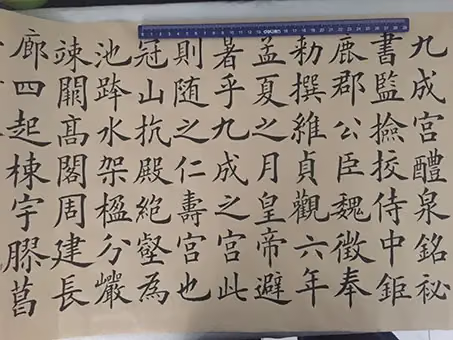 九成宮醴泉銘祕
書監撿挍侍中鉅
鹿郡公臣魏徵奉
勑撰維貞觀六年
孟夏之月皇帝避
暑乎九成之宮此
則随之仁壽宮也
冠山抗殿絕壑為
池跨水架楹分巖
竦闕高閣周建長
廊四起棟宇膠葛